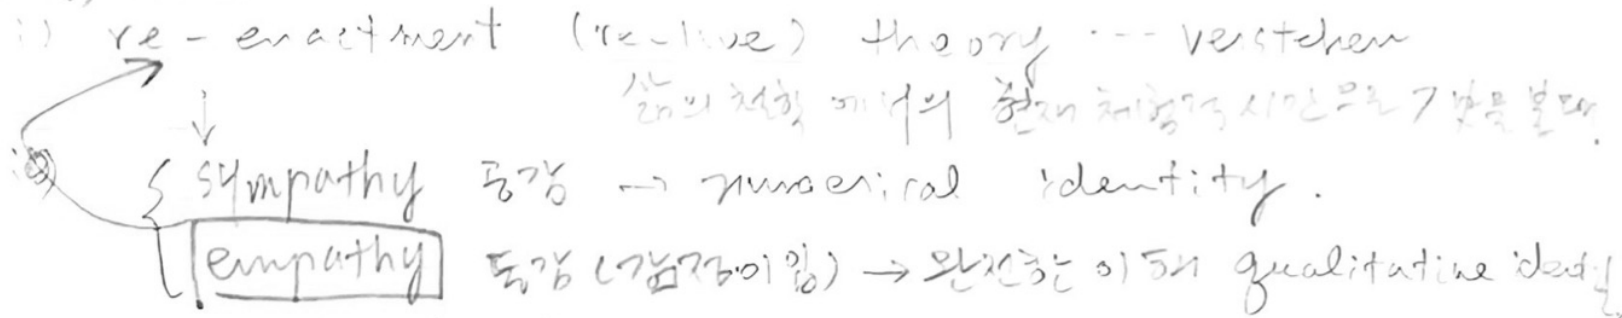 i) re-enactment (re-live) theory ... verstehen
삶의 철학 에서의 현재 체험적 시간으로
sympathy 동감 → numerical identity.
empathy 동감 (감정이입) → 완전한 이해 qualitative identity